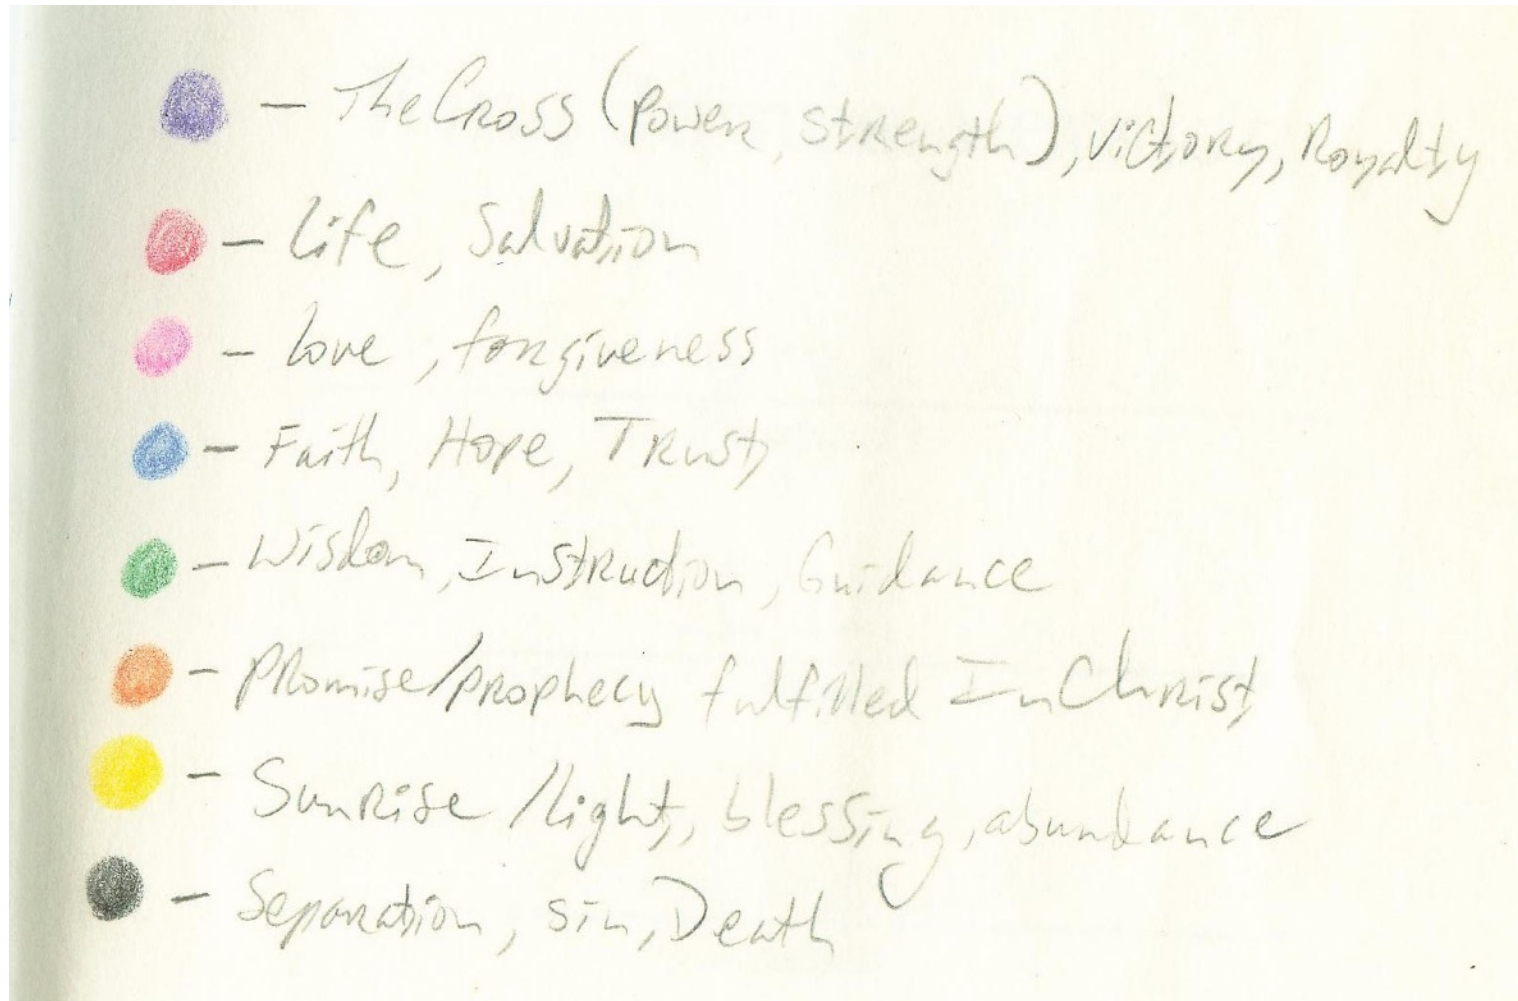 - The Cross (power, strength), victory, Royalty
- Life, Salvation
- love, forgiveness
- Faith, Hope, Trust
- Wisdom, Instruction, Guidance
- Promise/prophecy fulfilled In Christ
- Sunrise/light, blessing, abundance
- Separation, sin, Death